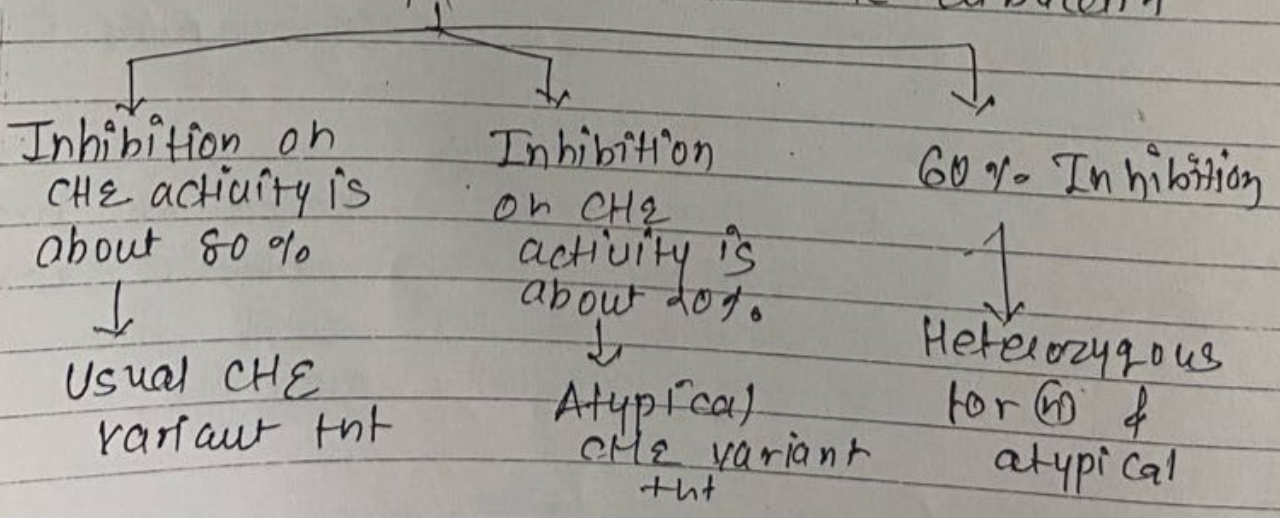 Inhibition on
CHE activity is
about 80%
Usual CHE
variant tnt
Inhibition
on CHE
activity is
about 20%.
Atypical
CHE variant
tnt
60% Inhibition
Heterozygous
for (n) &
atypical